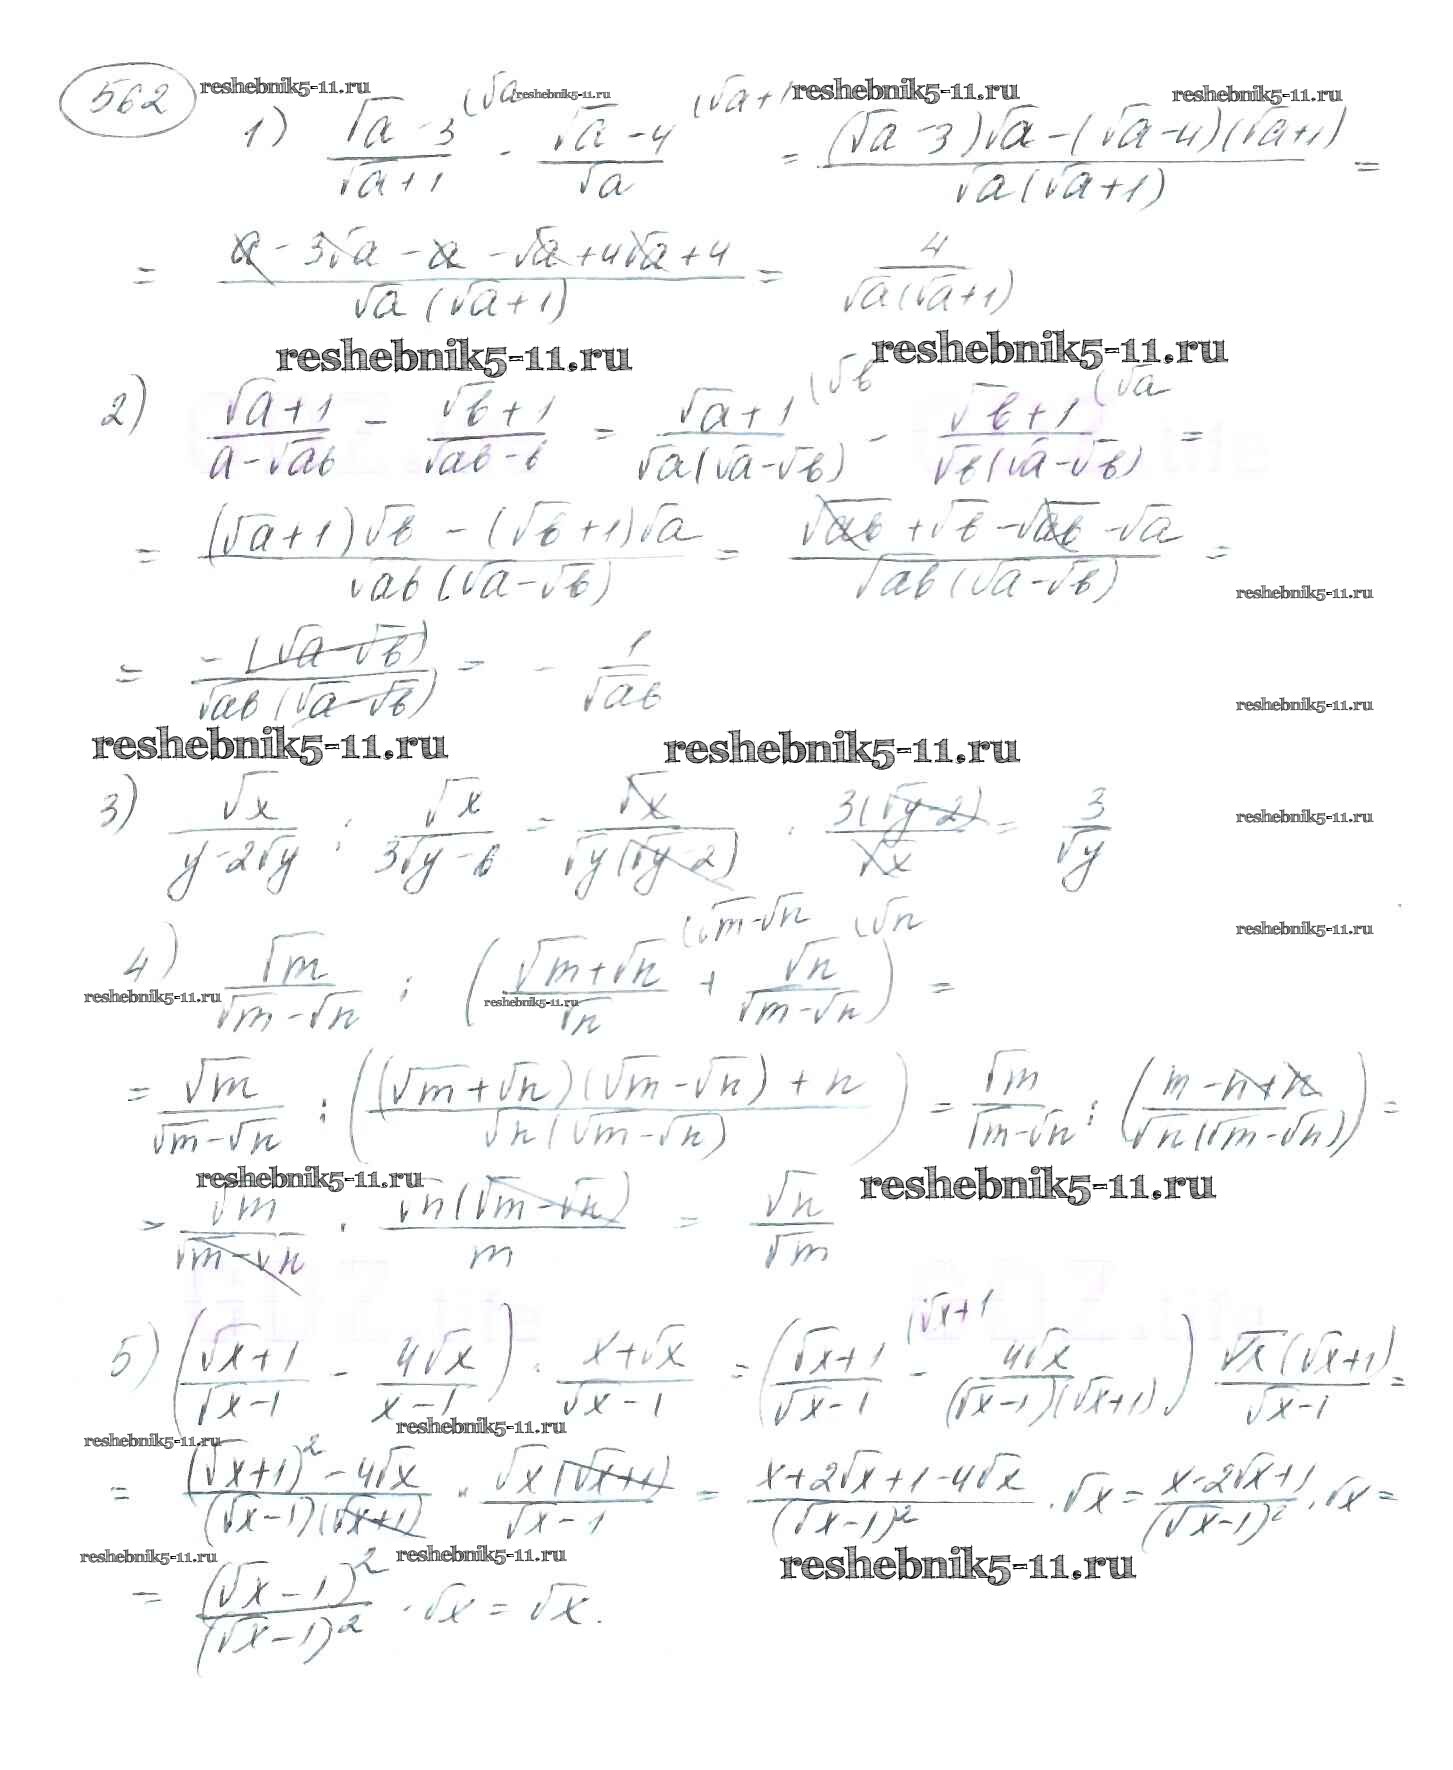 562 reshebnik5-11.ru (√a reshebnik5-11.ru (√a+1 reshebnik5-11.ru reshebnik5-11.ru
1) (√a-3)/(√a+1) - (√a-4)/√a = ((√a-3)√a-(√a-4)(√a+1))/(√a(√a+1)) =
= (a-3√a-a-√a+4√a+4)/(√a(√a+1)) = 4/(√a(√a+1))
reshebnik5-11.ru reshebnik5-11.ru
2) (√a+1)/(a-√ab) - (√b+1)/(√ab-b) = (√a+1)/(√a(√a-√b)) (√b - (√b+1)/(√b(√a-√b)) (√a =
= ((√a+1)√b-(√b+1)√a)/(√ab(√a-√b)) = (√ab+√b-√ab-√a)/(√ab(√a-√b)) =
reshebnik5-11.ru
= -(√a-√b)/(√ab(√a-√b)) = - 1/√ab
reshebnik5-11.ru
reshebnik5-11.ru reshebnik5-11.ru
3) √x/(y-2√y) : √x/(3√y-6) = √x/(√y(√y-2)) · 3(√y-2)/√x = 3/√y
reshebnik5-11.ru
reshebnik5-11.ru
4) √m/(√m-√n) : ((√m+√n)/√n (√m-√n + √n/(√m-√n) (√n) =
reshebnik5-11.ru reshebnik5-11.ru
= √m/(√m-√n) : (((√m+√n)(√m-√n)+n)/(√n(√m-√n))) = √m/(√m-√n) : ((m-n+n)/(√n(√m-√n))) =
reshebnik5-11.ru reshebnik5-11.ru
= √m/(√m-√n) · √n(√m-√n)/m = √n/√m
GDZ.life GDZ.life
5) ((√x+1)/(√x-1) - 4√x/(x-1)) · (x+√x)/(√x-1) = ((√x+1)/(√x-1) (√x+1 - 4√x/((√x-1)(√x+1))) √x(√x+1)/(√x-1) =
reshebnik5-11.ru reshebnik5-11.ru
= ((√x+1)²-4√x)/((√x-1)(√x+1)) · √x(√x+1)/(√x-1) = (x+2√x+1-4√x)/(√x-1)² · √x = (x-2√x+1)/(√x-1)² · √x =
reshebnik5-11.ru reshebnik5-11.ru reshebnik5-11.ru
= (√x-1)²/(√x-1)² · √x = √x.